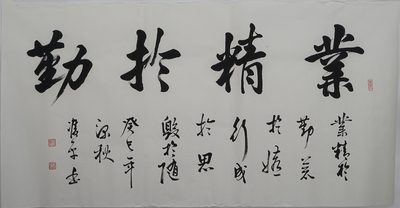 業精於勤
業精於
勤荒
於嬉
行成
於思
毁於随
癸巳年
秋